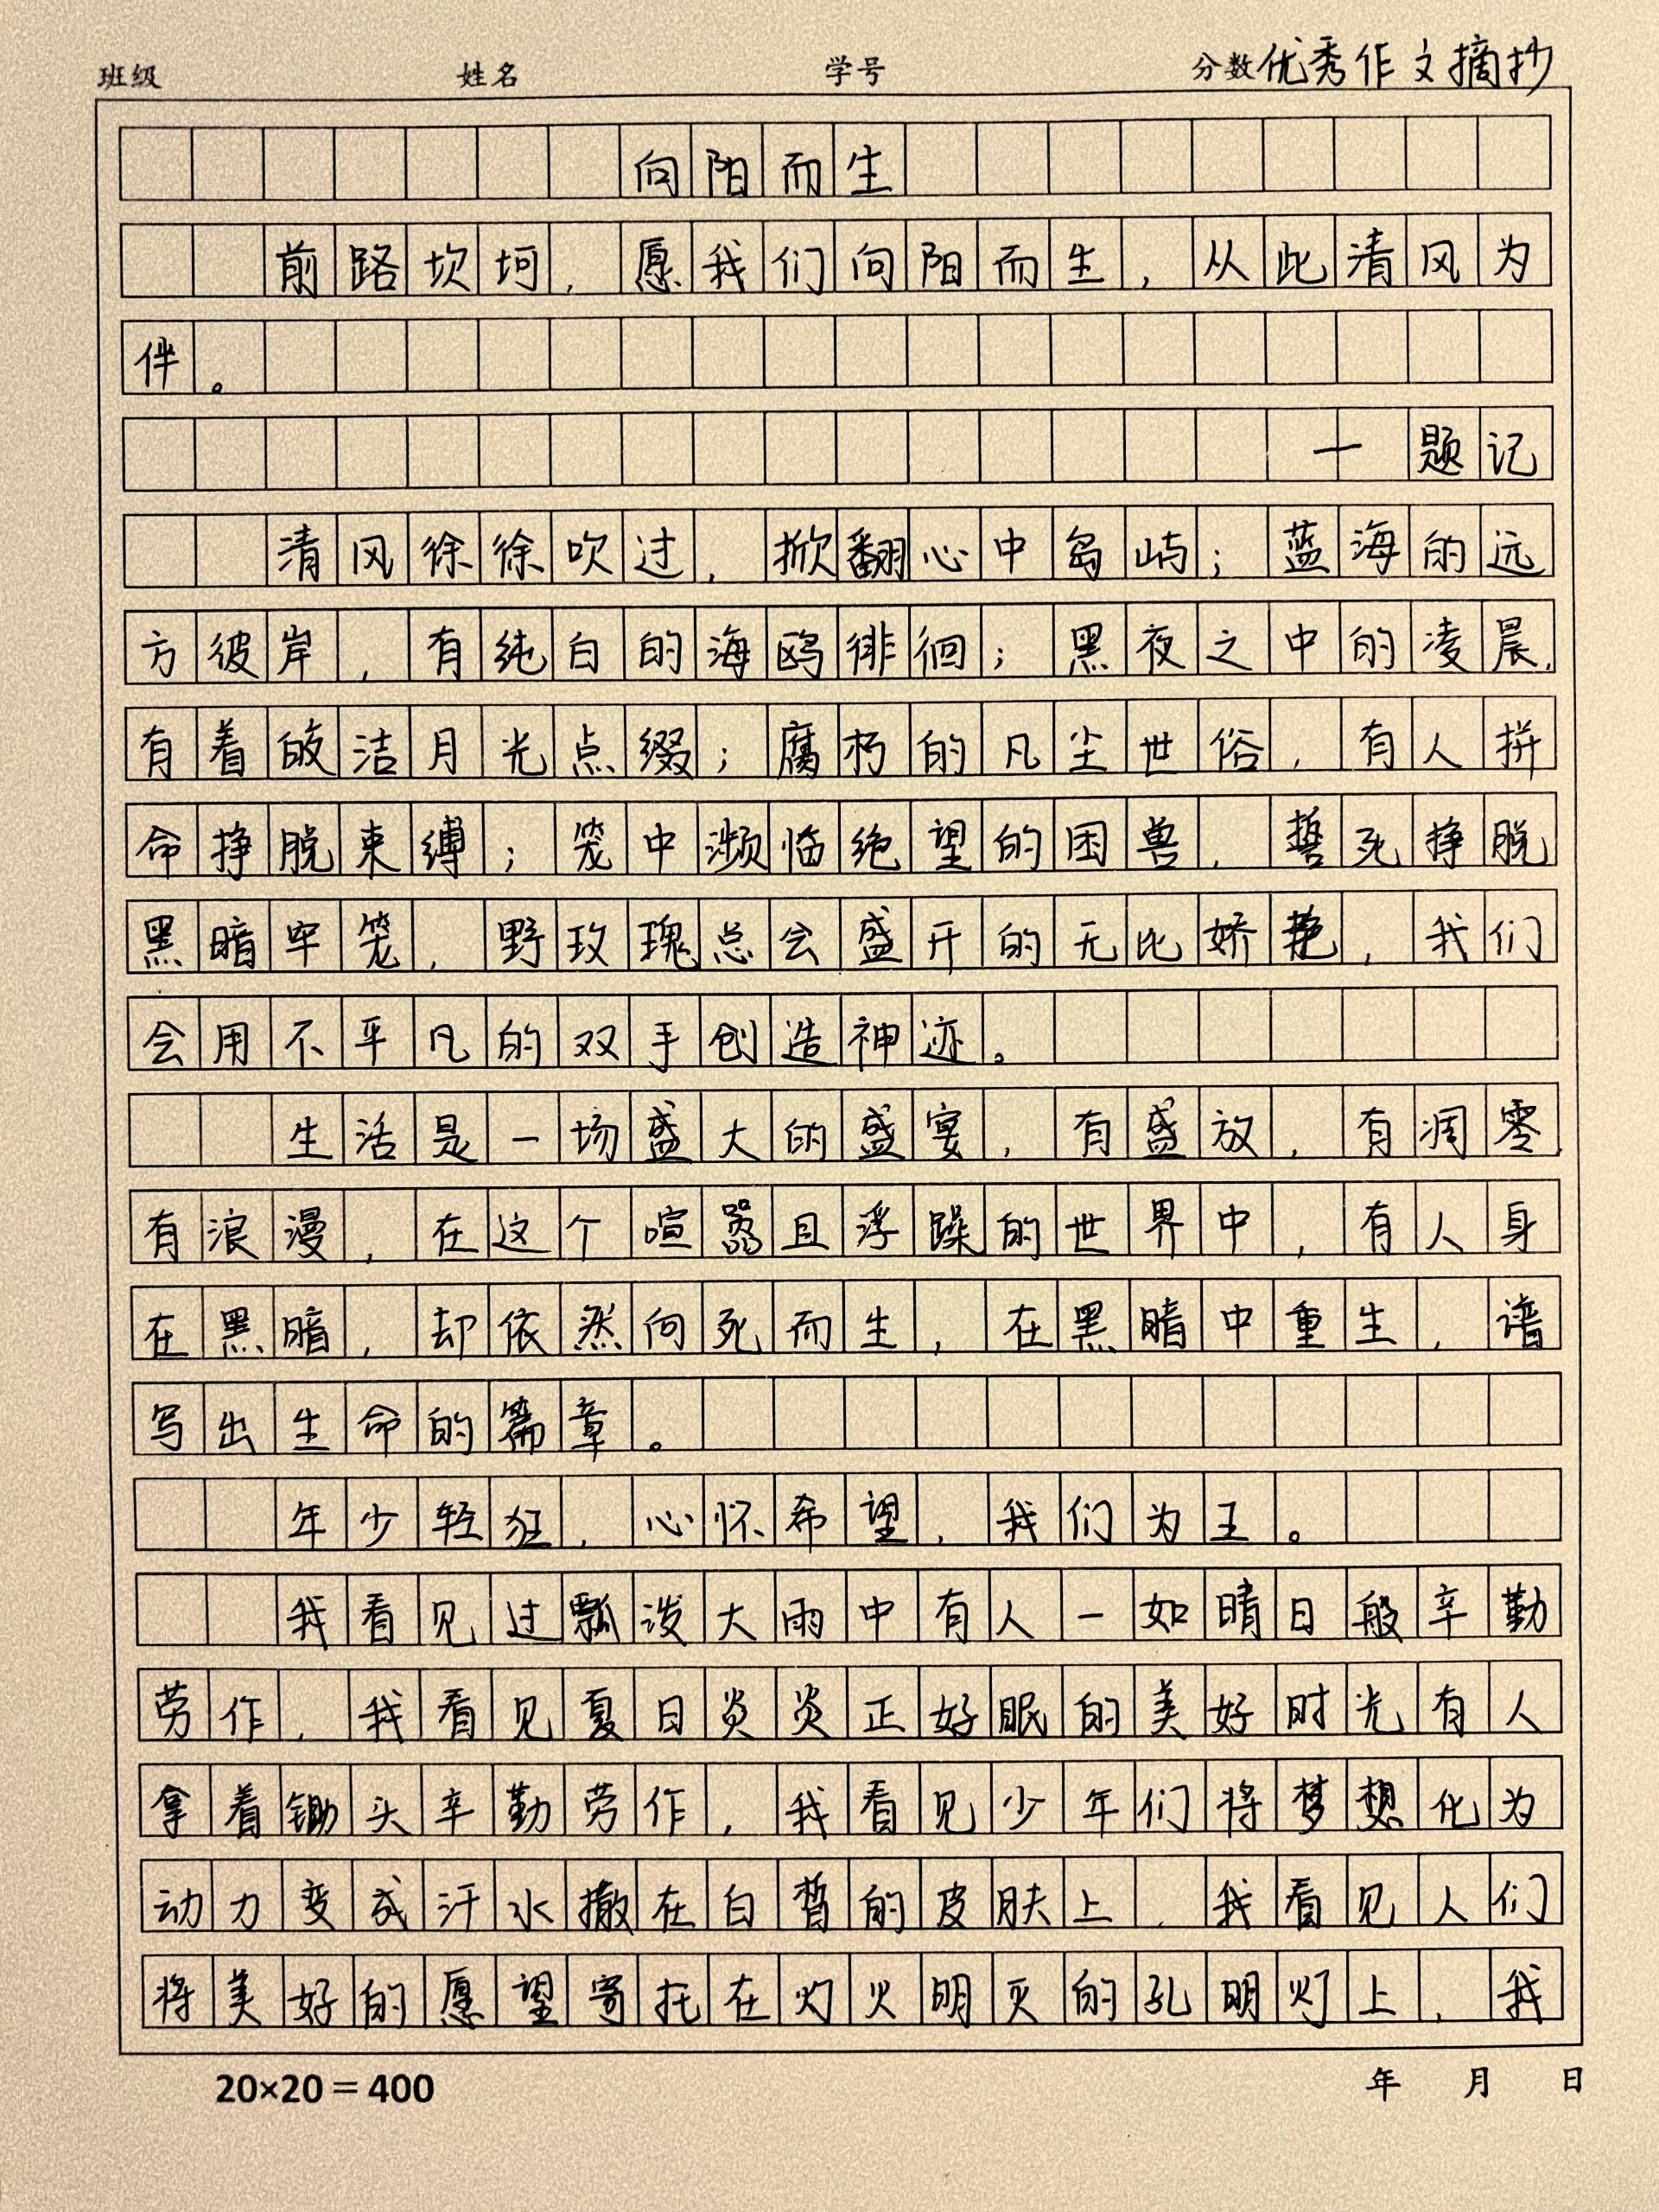 班级 姓名 学号 分数 优秀作文摘抄
向阳而生
前路坎坷，愿我们向阳而生，从此清风为
伴。
—题记
清风徐徐吹过，掀翻心中岛屿；蓝海的远
方彼岸，有纯白的海鸥徘徊；黑夜之中的凌晨，
有着皎洁月光点缀；腐朽的凡尘世俗，有人拼
命挣脱束缚；笼中濒临绝望的困兽，誓死挣脱
黑暗牢笼，野玫瑰总会盛开的无比娇艳，我们
会用不平凡的双手创造神迹。
生活是一场盛大的盛宴，有盛放，有凋零，
有浪漫，在这个喧嚣且浮躁的世界中，有人身
在黑暗，却依然向死而生，在黑暗中重生，谱
写出生命的篇章。
年少轻狂，心怀希望，我们为王。
我看见过瓢泼大雨中有人一如晴日般辛勤
劳作，我看见夏日炎炎正好眠的美好时光有人
拿着锄头辛勤劳作，我看见少年们将梦想化为
动力变成汗水撒在白皙的皮肤上，我看见人们
将美好的愿望寄托在灯火明灭的孔明灯上，我
20×20＝400 年 月 日